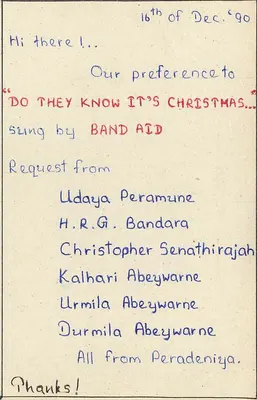 16th of Dec. '90
Hi there!..
Our preference to
"DO THEY KNOW IT'S CHRISTMAS..."
sung by BAND AID
Request from
Udaya Peramune
H.R.G. Bandara
Christopher Senathirajah
Kalhari Abeywarne
Urmila Abeywarne
Durmila Abeywarne
All from Peradeniya.
Thanks!